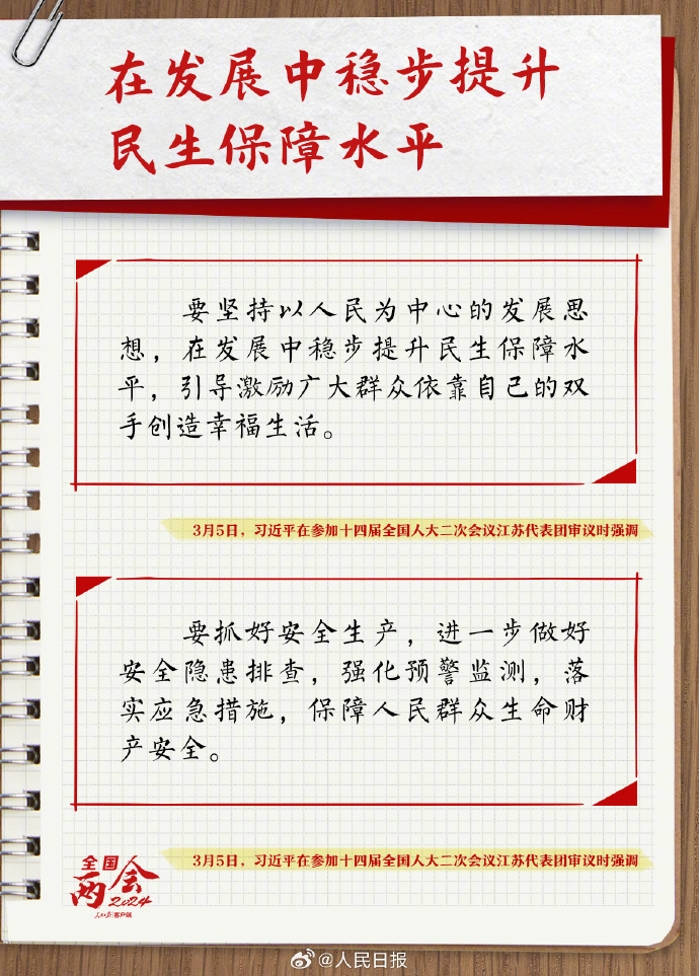 在发展中稳步提升
民生保障水平
要坚持以人民为中心的发展思
想，在发展中稳步提升民生保障水
平，引导激励广大群众依靠自己的双
手创造幸福生活。
3月5日，习近平在参加十四届全国人大二次会议江苏代表团审议时强调
要抓好安全生产，进一步做好
安全隐患排查，强化预警监测，落
实应急措施，保障人民群众生命财
产安全。
3月5日，习近平在参加十四届全国人大二次会议江苏代表团审议时强调
全国
两会
2024
人民日报客户端
@人民日报